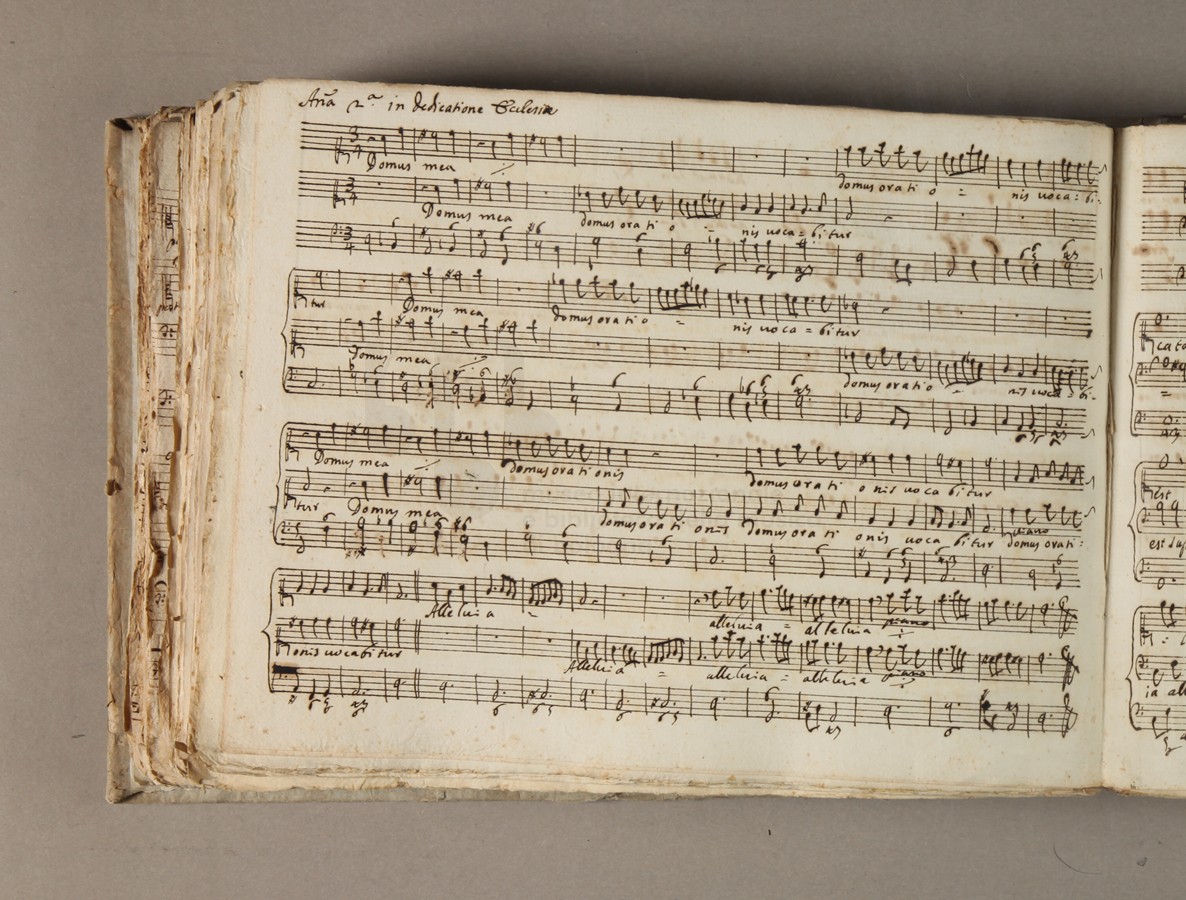 Aria 2.a in dedicatione Ecclesiæ
3 4 Domus mea domus orati o = nis voca = bi-
3 4 Domus mea domus orati o = nis voca = bitur
3 4
tur Domus mea domus orati o = nis voca = bitur
Domus mea domus oratio nis voca = bi-
Domus mea domus orati onis domus orati o nis voca bitur
tur Domus mea domus orati onis domus orati onis voca bitur piano domus orati:
Alleluia alleluia = alleluia piano
onis vocabitur Alleluia = alleluia = alleluia piano
cato
est
est
ia al